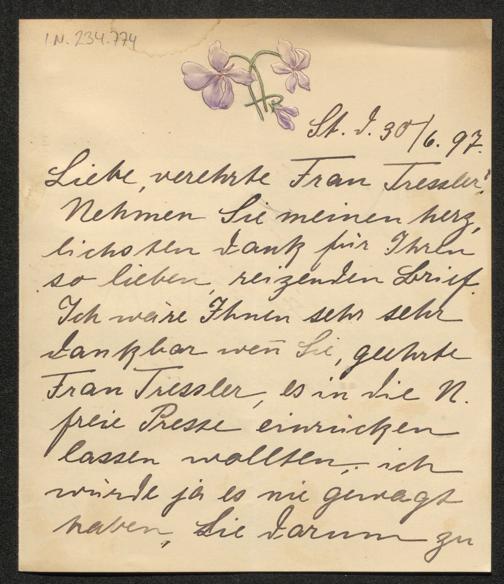 I.N. 234.774
St. J. 30/6. 97.
Liebe, verehrte Frau Tressler!
Nehmen Sie meinen herz,
lichsten Dank für Ihren
so lieben, reizenden Brief.
Ich wäre Ihnen sehr sehr
dankbar weñ Sie, geehrte
Frau Tressler, es in die N.
freie Presse einrücken
lassen wollten, ich
würde ja es nie gewagt
haben, Sie darum zu